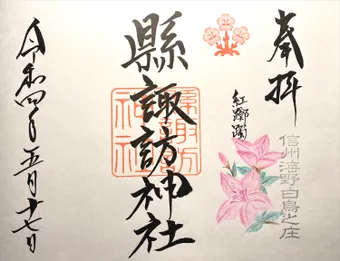 奉拝
信州海野白鳥之庄
紅躑躅
縣諏訪神社
令和四年五月十七日